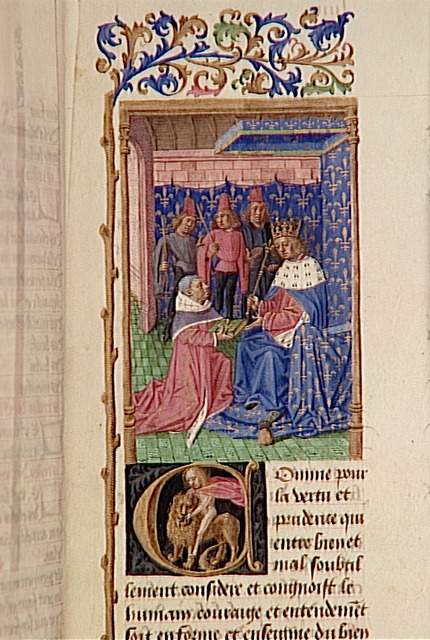 Omme pour
la vertu et
prudence qui
entre bien et
mal soubtil
lement considere et congnoist le
humain couraige et entendement
soit enforme et enseigne du bien